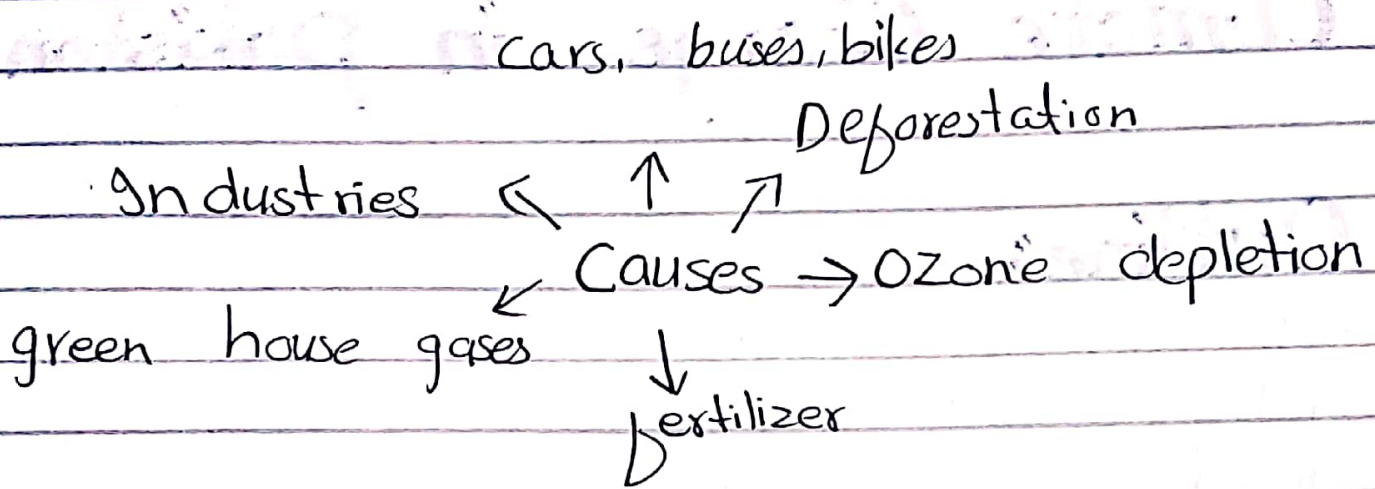 cars, buses, bikes
Deforestation
Industries ↖ ↑ ↗
Causes → Ozone depletion
green house gases ↙ ↓
fertilizer